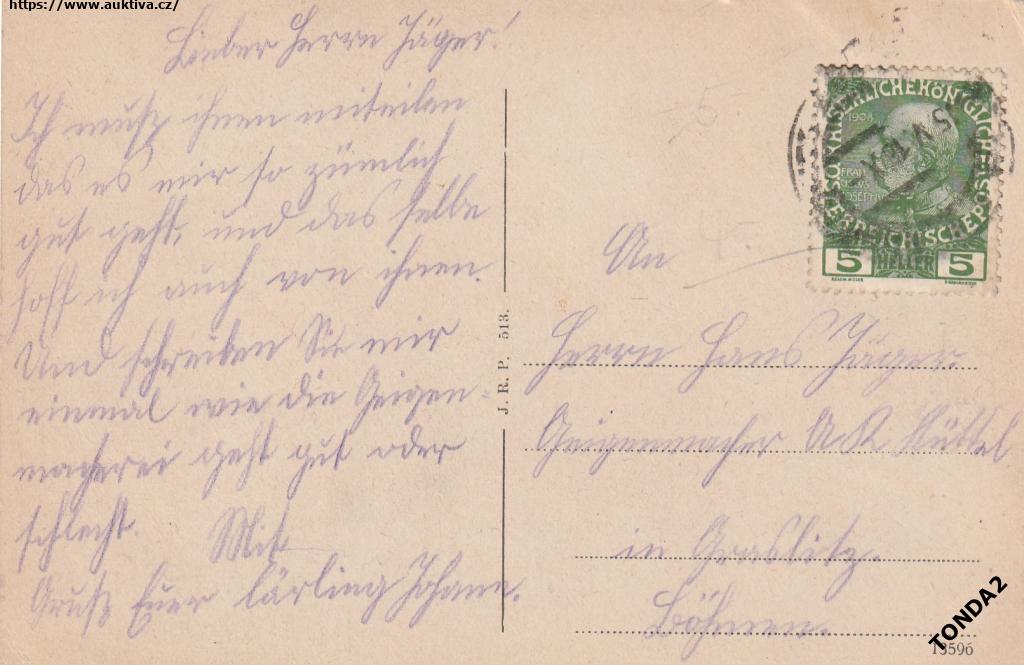 https://www.auktiva.cz/
Lieber Herrn Jäger!
Ich muß ihnen miteilen
das es mir so zümlich
gut geht, und das selbe
hoff ich auch von ihnen.
Und schreiben Sie mir
einmal wie die Geigen-
macherei geht gut oder
schlecht. Mit
Gruß Euer lärling Johann.
J. R. P. 513.
KAISERLICHE KÖNIGLICHE ÖSTERREICHISCHE POST
1908
FRANCISCUS JOSEPH I
5 HELLER 5
An
Herrn Hans Jäger
Geigenmacher A K Hüttel
in Graslitz.
Böhmen.
TONDA2
13596